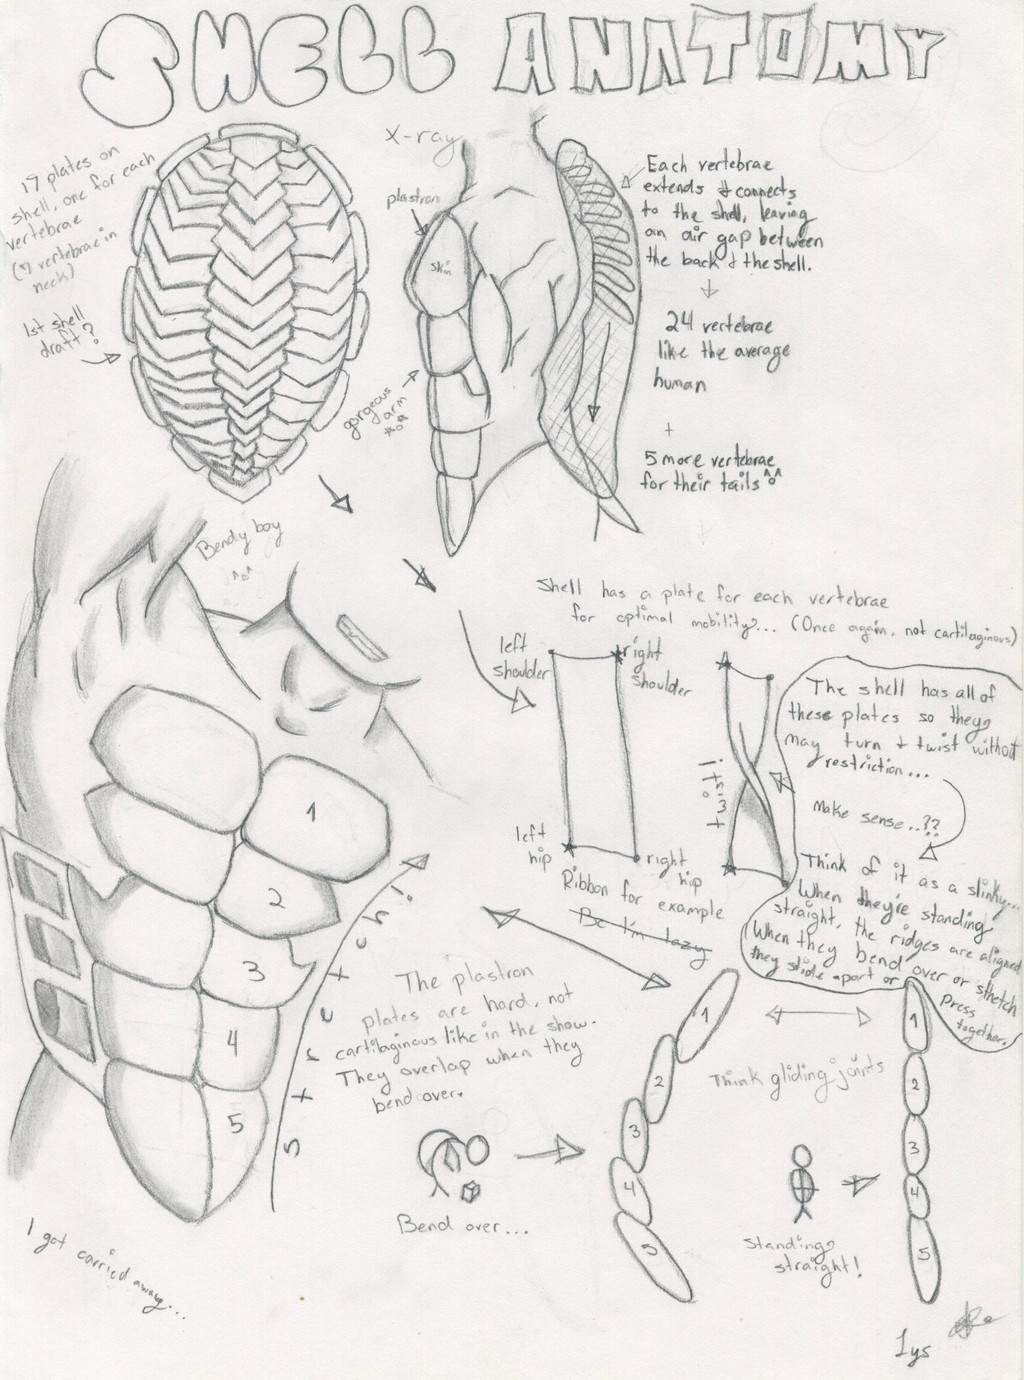 SHELL ANATOMY
17 plates on
shell, one for each
vertebrae
(7 vertebrae in
neck)
1st shell
draft?
X-ray
plastron
skin
gorgeous
arm
Each vertebrae
extends & connects
to the shell, leaving
an air gap between
the back & the shell.
24 vertebrae
like the average
human
+
5 more vertebrae
for their tails ^o^
Bendy boy
^o^
Shell has a plate for each vertebrae
for optimal mobility... (Once again, not cartilaginous)
left
shoulder
right
shoulder
left
hip
right
hip
Ribbon for example
Bc I'm lazy
twist!
The shell has all of
these plates so they
may turn & twist without
restriction...
Make sense..??
Think of it as a slinky...
When they're standing
straight, the ridges are aligned
When they bend over or stretch
they slide apart or
press
together.
1
2
3
4
5
stretch!
The plastron
plates are hard, not
cartilaginous like in the show.
They overlap when they
bend over.
Bend over...
1
2
3
4
5
Think gliding joints
Standing
straight!
1
2
3
4
5
I got carried away...
Lys